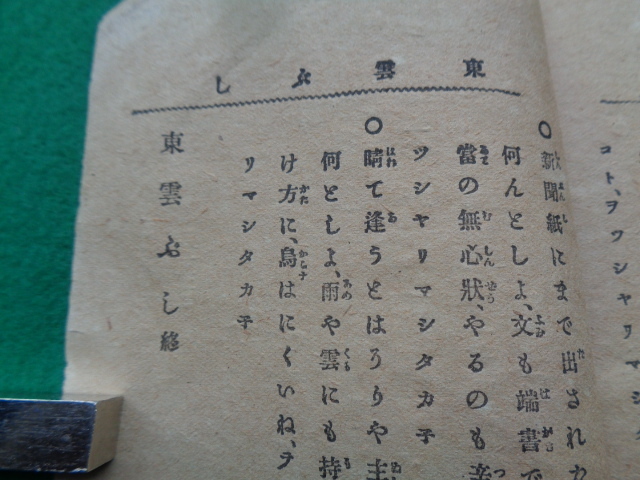 東雲ぶし
コト、ヲツシヤリマシ
○新聞紙にまで出された
何んとしよ、文も端書で
當の無心狀、やるのも辛
ツシヤリマシタカ子
○晴て逢うとはうりや主
何としよ、雨や雲にも持
け方に、烏はにくいね、ヲ
リマシタカ子
東雲ぶし終